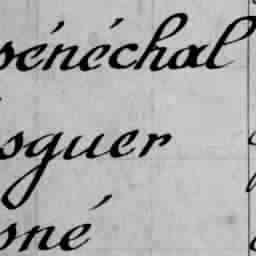 sénéchal
sguer
sné